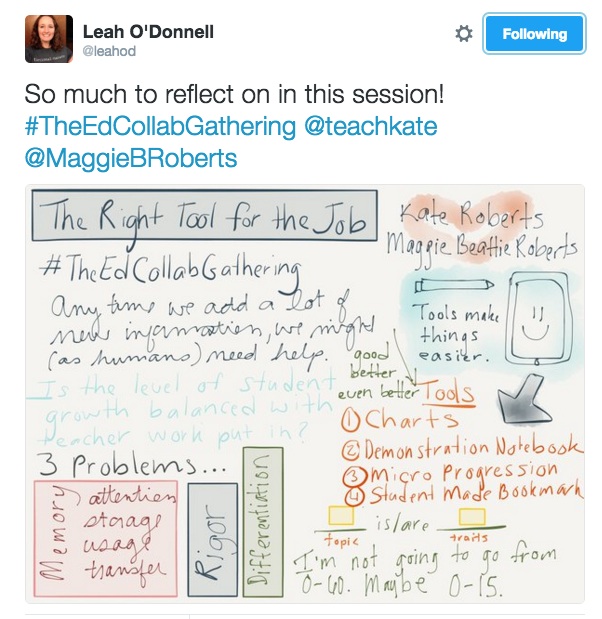 Leah O'Donnell
@leahod
Following
So much to reflect on in this session!
#TheEdCollabGathering @teachkate
@MaggieBRoberts
The Right Tool for the Job
Kate Roberts
Maggie Beattie Roberts
#TheEdCollabGathering
Any time we add a lot of
new information, we might
(as humans) need help.
Tools make
things
easier.
good
better
even better
Is the level of student
growth balanced with
teacher work put in?
Tools
① Charts
② Demonstration Notebook
③ Micro Progression
④ Student Made Bookmark
3 Problems...
Memory
attention
storage
usage
transfer
Rigor
Differentiation
is/are
topic
traits
I'm not going to go from
0-60. Maybe 0-15.